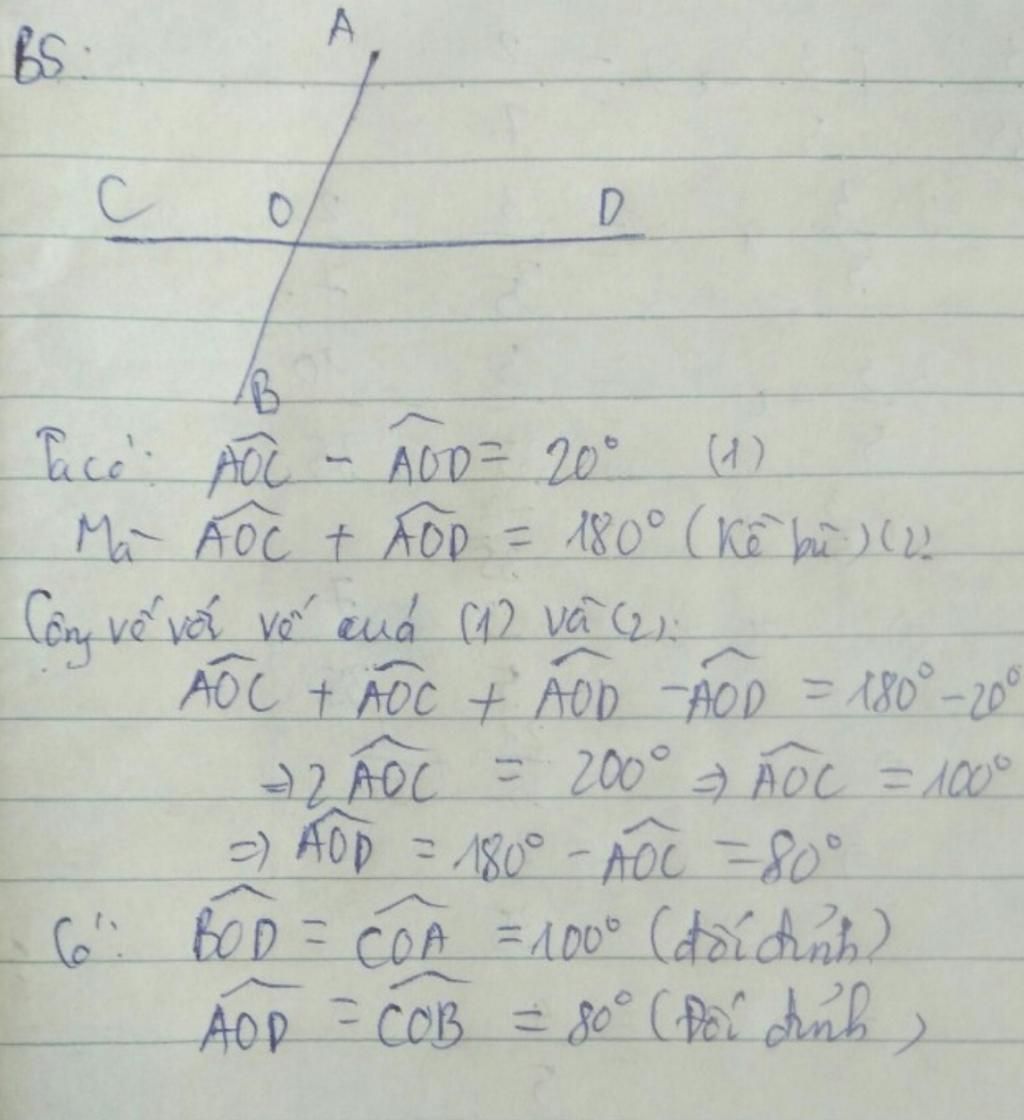 B5:
A
C O D
B
Ta có: AOC - AOD = 20° (1)
Mà AOC + AOD = 180° (Kề bù) (2)
Cộng vế với vế của (1) và (2):
AOC + AOC + AOD - AOD = 180° - 20°
⇒ 2 AOC = 200° ⇒ AOC = 100°
⇒ AOD = 180° - AOC = 80°
Có: BOD = COA = 100° (đối đỉnh)
AOD = COB = 80° (Đối đỉnh)